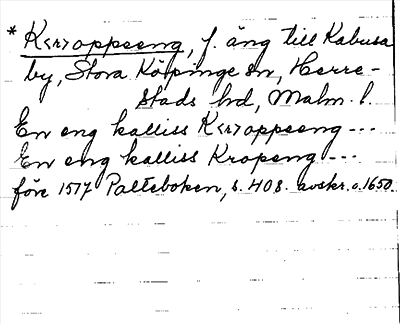 * K<r>oppseng, f. äng till Kabusa
by, Stora Köpinge sn, Herre-
stads hd, Malm. l.
En eng kalliss K<r>oppseng ---
En eng kalliss Kropeng ---
före 1577 Palteboken, s. 408. avskr. c. 1650.